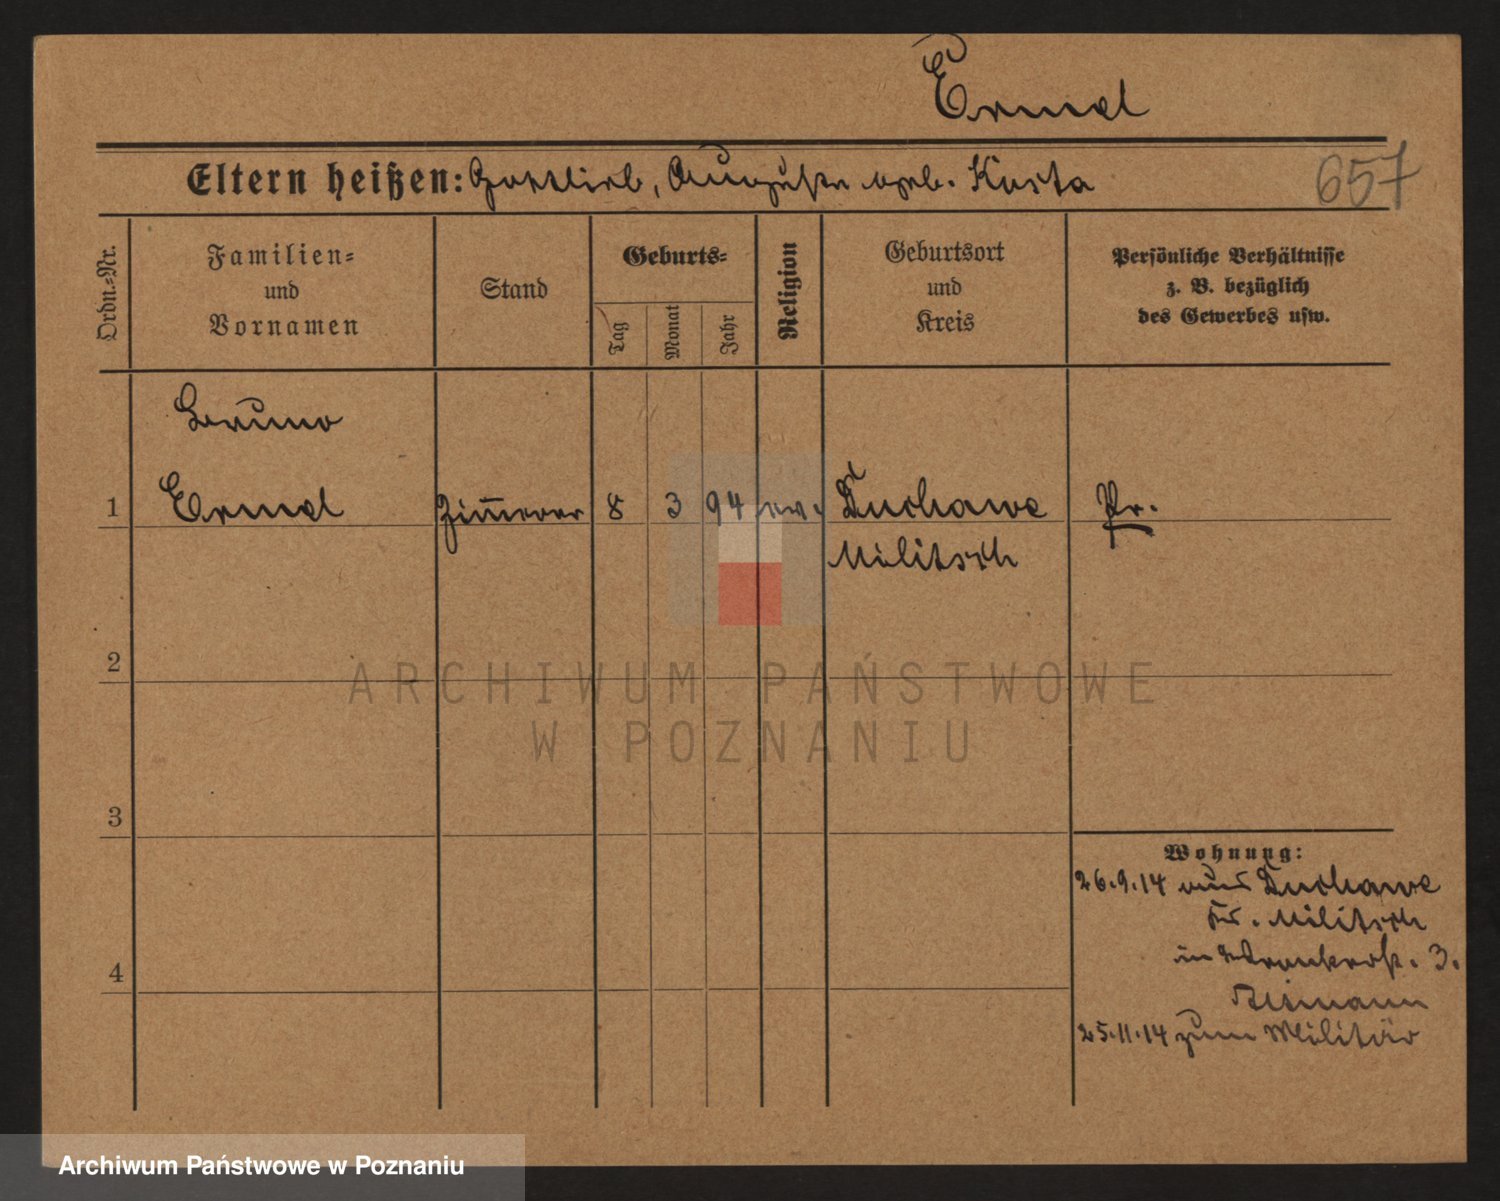 Ermel
Eltern heißen: Gottlieb, Auguste geb. Kusta
657
Ordn.-Nr.
Familien-
und
Vornamen
Stand
Geburts-
Tag
Monat
Jahr
Religion
Geburtsort
und
Kreis
Persönliche Verhältnisse
z. B. bezüglich
des Gewerbes usw.
Bruno
1 Ermel 8 3 94 ev. Duchawe Pr.
Militsch
2
3
4
Wohnung:
26.9.14 aus Duchawe
Kr. Militsch
in 3.
25.11.14 zum Militär
ARCHIWUM PAŃSTWOWE
W POZNANIU
Archiwum Państwowe w Poznaniu